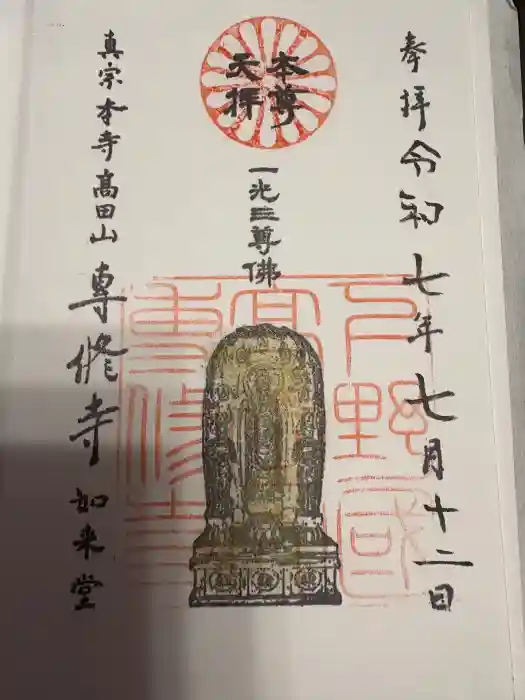 奉拝 令和七年七月十二日
本尊
天拝
一光三尊佛
下野國
高
専修寺
真宗本寺高田山 専修寺 如来堂